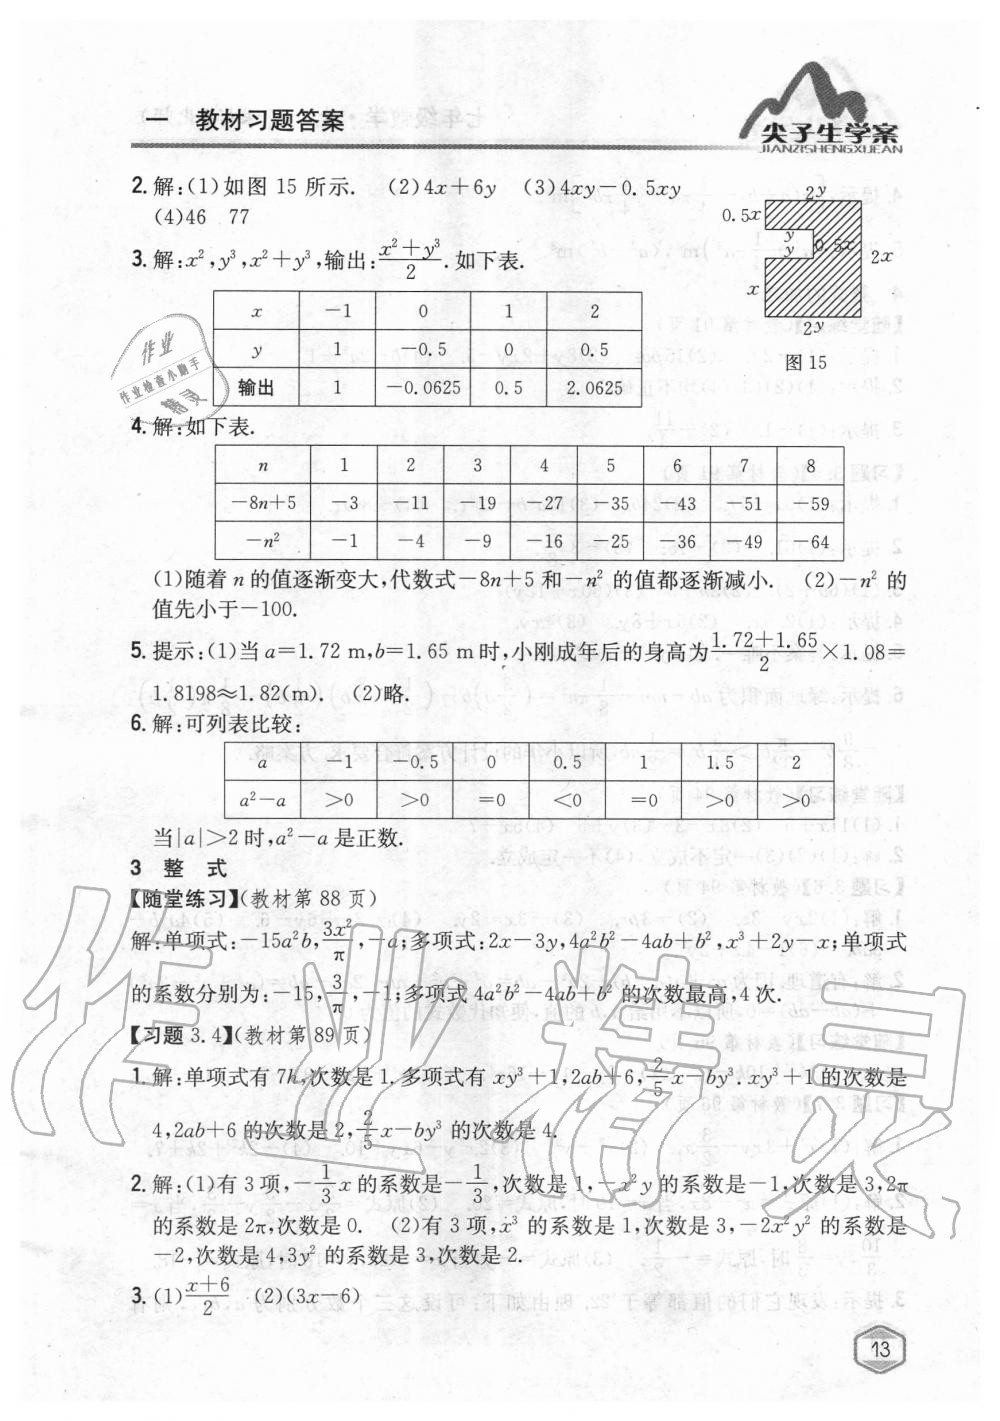 一 教材习题答案
尖子生学案
JIANZISHENGXUEAN
2.解:(1)如图 15 所示. (2)4x+6y (3)4xy-0.5xy
(4)46 77
2y
0.5x
y
y
0.5x
2x
x
2y
图 15
3.解:x²,y³,x²+y³,输出:(x²+y³)/2.如下表.
x -1 0 1 2
y 1 -0.5 0 0.5
输出 1 -0.0625 0.5 2.0625
4.解:如下表.
n 1 2 3 4 5 6 7 8
-8n+5 -3 -11 -19 -27 -35 -43 -51 -59
-n² -1 -4 -9 -16 -25 -36 -49 -64
(1)随着 n 的值逐渐变大,代数式-8n+5 和-n² 的值都逐渐减小. (2)-n² 的
值先小于-100.
5.提示:(1)当 a=1.72 m,b=1.65 m时,小刚成年后的身高为(1.72+1.65)/2×1.08=
1.8198≈1.82(m). (2)略.
6.解:可列表比较:
a -1 -0.5 0 0.5 1 1.5 2
a²-a >0 >0 =0 <0 =0 >0 >0
当|a|>2时,a²-a 是正数.
3 整 式
【随堂练习】(教材第 88 页)
解:单项式:-15a²b,3x²/π,-a;多项式:2x-3y,4a²b²-4ab+b²,x³+2y-x;单项式
的系数分别为:-15,3/π,-1;多项式 4a²b²-4ab+b² 的次数最高,4 次.
【习题 3.4】(教材第 89 页)
1.解:单项式有 7h,次数是 1.多项式有 xy³+1,2ab+6,2/5x-by³.xy³+1的次数是
4,2ab+6 的次数是 2,2/5x-by³ 的次数是 4.
2.解:(1)有 3 项,-1/3x 的系数是-1/3,次数是 1,-x²y 的系数是-1,次数是 3,2π
的系数是 2π,次数是 0. (2)有 3 项,x³ 的系数是 1,次数是 3,-2x²y² 的系数是
-2,次数是 4,3y² 的系数是 3,次数是 2.
3.(1)(x+6)/2 (2)(3x-6)
13
作业
作业检查小助手
精灵
作业精灵